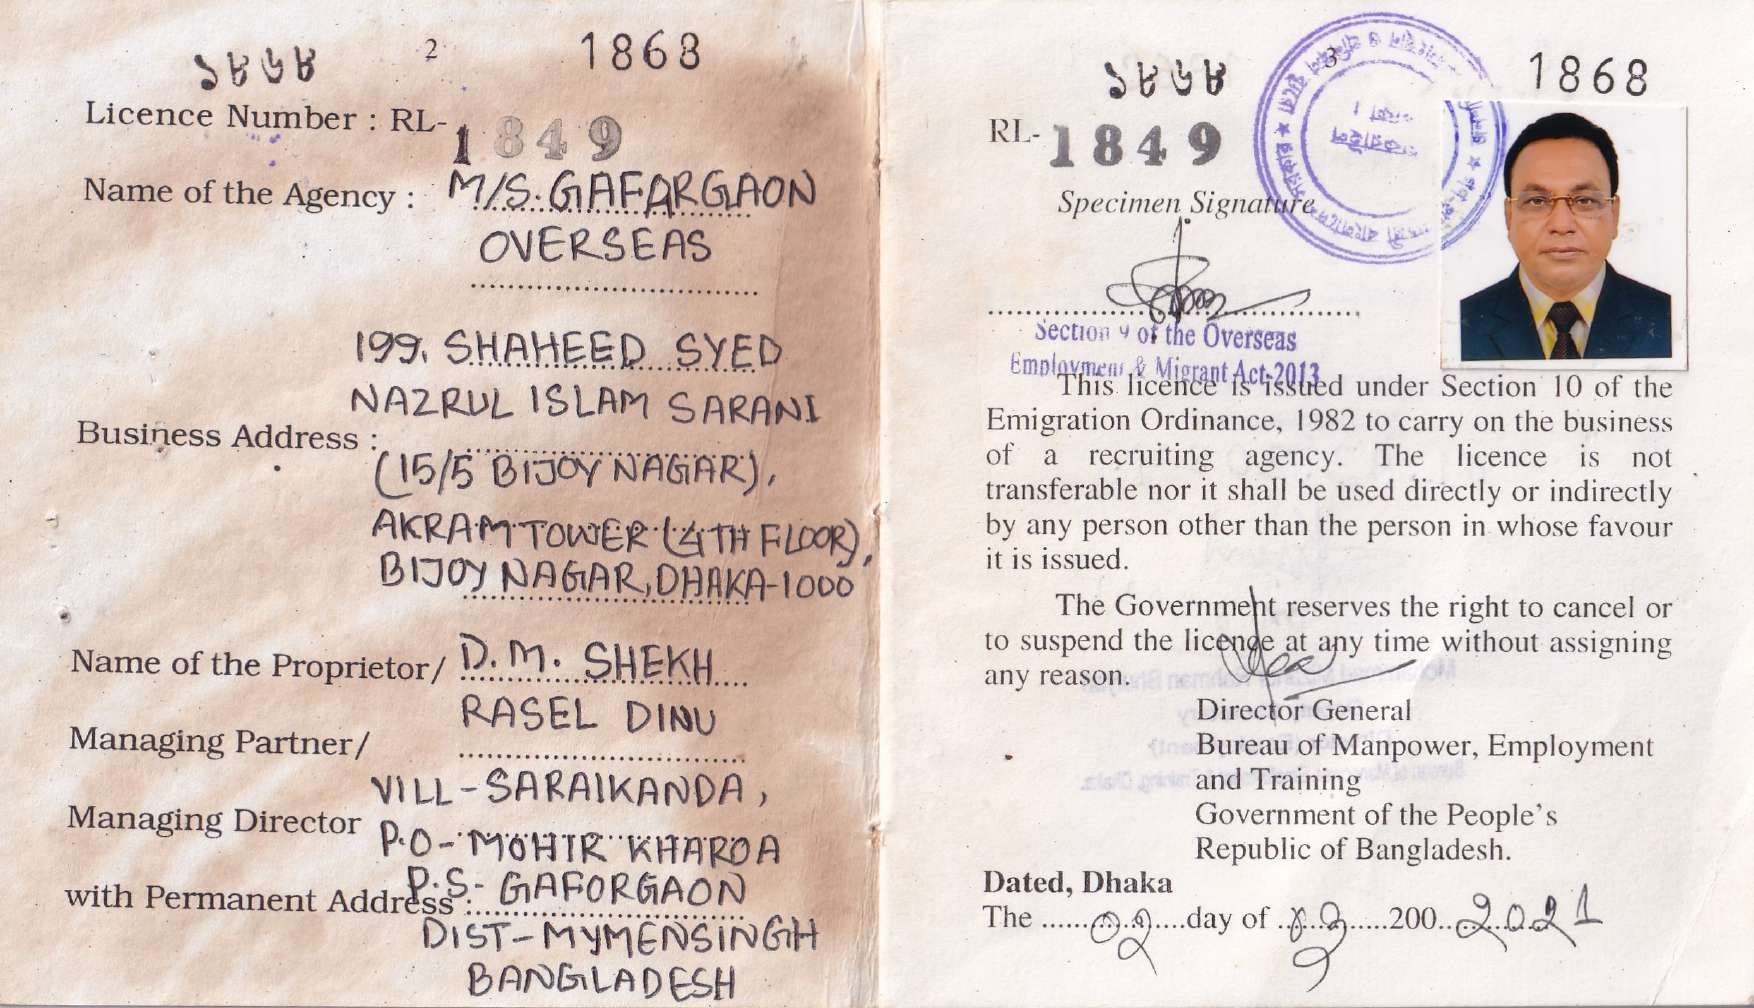 ১৮৬৮ 2 1868
Licence Number : RL- 1849
Name of the Agency : M/S. GAFARGAON
OVERSEAS
199, SHAHEED SYED
NAZRUL ISLAM SARANI
Business Address :
(15/5 BIJOY NAGAR),
AKRAM TOWER (4TH FLOOR),
BIJOY NAGAR, DHAKA-1000
Name of the Proprietor/ D.M. SHEKH
RASEL DINU
Managing Partner/
VILL-SARAIKANDA,
Managing Director
P.O-MOHIR KHAROA
with Permanent Address : P.S- GAFORGAON
DIST-MYMENSINGH
BANGLADESH
১৮৬৮ 3 1868
RL- 1849
Specimen Signature
Section 9 of the Overseas
Employment & Migrant Act-2013
This licence is issued under Section 10 of the
Emigration Ordinance, 1982 to carry on the business
of a recruiting agency. The licence is not
transferable nor it shall be used directly or indirectly
by any person other than the person in whose favour
it is issued.
The Government reserves the right to cancel or
to suspend the licence at any time without assigning
any reason.
Director General
Bureau of Manpower, Employment
and Training
Government of the People's
Republic of Bangladesh.
Dated, Dhaka
The ......০২....day of .........200...2021